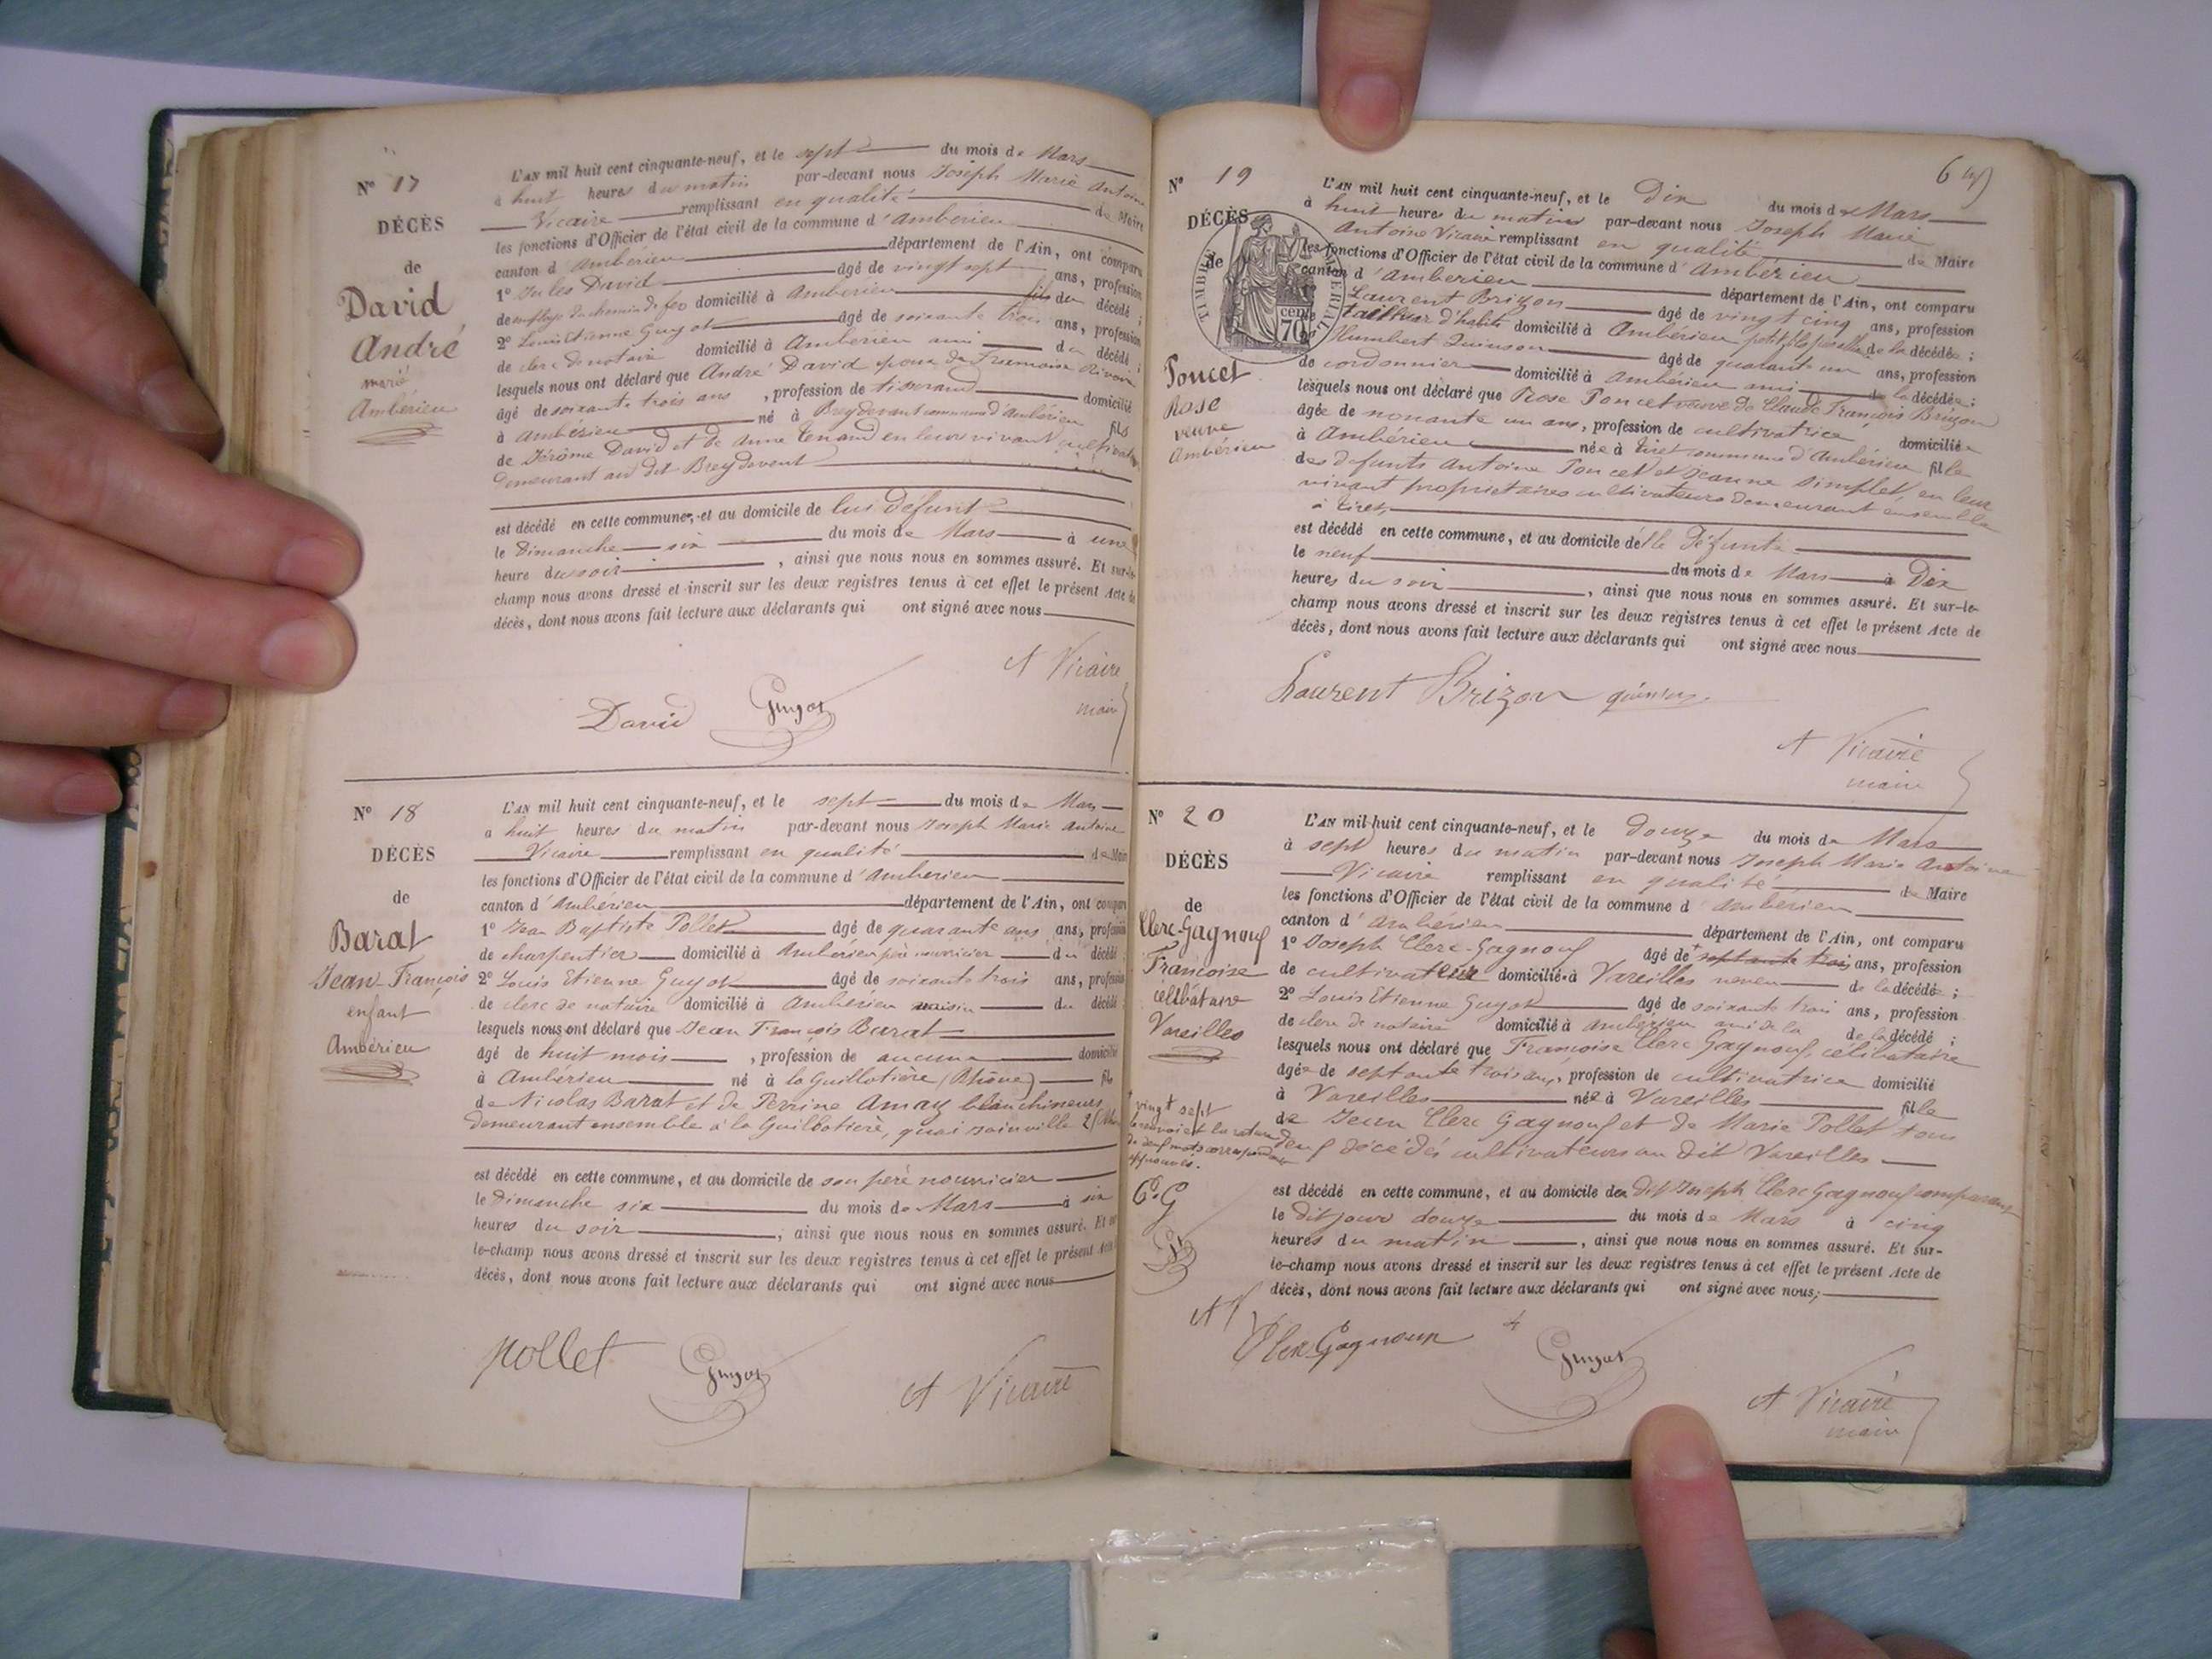 N° 17
DÉCÈS
de
David
André
marié
Ambérieu
L'AN mil huit cent cinquante-neuf, et le sept du mois de Mars
à huit heures du matin par-devant nous Joseph Marie Antoine
Vicaire remplissant en qualité de Maire
les fonctions d'Officier de l'état civil de la commune d'Ambérieu
canton d'Ambérieu département de l'Ain, ont comparu
1° Jules David âgé de vingt sept ans, profession
d'employé du chemin de fer domicilié à Ambérieu fils du décédé ;
2° Louis Etienne Guyot âgé de soixante trois ans, profession
de clerc de notaire domicilié à Ambérieu ami du décédé ;
lesquels nous ont déclaré que André David époux de Françoise
âgé de soixante trois ans, profession de tisserand domicilié
à Ambérieu né à Breydevent commune d'Ambérieu fils
de Jérôme David et de Anne Tenand en leur vivant
demeurant au dit Breydevent
est décédé en cette commune, et au domicile de lui défunt
le Dimanche six du mois de Mars à une
heure du soir, ainsi que nous nous en sommes assuré. Et sur-le-
champ nous avons dressé et inscrit sur les deux registres tenus à cet effet le présent Acte de
décès, dont nous avons fait lecture aux déclarants qui ont signé avec nous
A Vicaire
maire
David Guyot
N° 18
DÉCÈS
de
Barat
Jean-François
enfant
Ambérieu
L'AN mil huit cent cinquante-neuf, et le sept du mois de Mars
à huit heures du matin par-devant nous Joseph Marie Antoine
Vicaire remplissant en qualité de Maire
les fonctions d'Officier de l'état civil de la commune d'Ambérieu
canton d'Ambérieu département de l'Ain, ont comparu
1° Jean Baptiste Pollet âgé de quarante ans ans, profession
de charpentier domicilié à Ambérieu père nourricier du décédé
2° Louis Etienne Guyot âgé de soixante trois ans, profession
de clerc de notaire domicilié à Ambérieu voisin du décédé ;
lesquels nous ont déclaré que Jean François Barat
âgé de huit mois, profession de aucune domicilié
à Ambérieu né à la Guillotière (Rhône) fils
de Nicolas Barat et de Perrine Amay blanchisseurs
demeurant ensemble à la Guillotière, quai Joinville 2
est décédé en cette commune, et au domicile de son père nourricier
le Dimanche six du mois de Mars à six
heures du soir, ainsi que nous nous en sommes assuré. Et sur-
le-champ nous avons dressé et inscrit sur les deux registres tenus à cet effet le présent Acte
décès, dont nous avons fait lecture aux déclarants qui ont signé avec nous
pollet Guyot A Vicaire
6
N° 19
DÉCÈS
de
TIMBRE IMPÉRIAL
70 cent
Poncet
Rose
veuve
Ambérieu
L'AN mil huit cent cinquante-neuf, et le Dix du mois de Mars
à huit heures du matin par-devant nous Joseph Marie
Antoine Vicaire remplissant en qualité de Maire
les fonctions d'Officier de l'état civil de la commune d'Ambérieu
canton d'Ambérieu département de l'Ain, ont comparu
Laurent Brizon âgé de vingt cinq ans, profession
de tailleur d'habits domicilié à Ambérieu petit fils de la décédée ;
Humbert Quinson âgé de quarante un ans, profession
de cordonnier domicilié à Ambérieu ami de la décédée ;
lesquels nous ont déclaré que Rose Poncet veuve de Claude François Brizon
âgée de nonante un ans, profession de cultivatrice domiciliée
à Ambérieu née à Tiret commune d'Ambérieu fille
des défunts Antoine Poncet et Jeanne Simplet, en leur
vivant propriétaires cultivateurs demeurant ensemble
à Tiret,
est décédé en cette commune, et au domicile d'elle Défunte
le neuf du mois de Mars à Dix
heures du soir, ainsi que nous nous en sommes assuré. Et sur-le-
champ nous avons dressé et inscrit sur les deux registres tenus à cet effet le présent Acte de
décès, dont nous avons fait lecture aux déclarants qui ont signé avec nous
Laurent Brizon quinson
A Vicaire
maire
N° 20
DÉCÈS
de
Clerc-Gagnouf
Françoise
célibataire
Vareilles
L'AN mil huit cent cinquante-neuf, et le douze du mois de Mars
à sept heures du matin par-devant nous Joseph Marie Antoine
Vicaire remplissant en qualité de Maire
les fonctions d'Officier de l'état civil de la commune d'Ambérieu
canton d'Ambérieu département de l'Ain, ont comparu
1° Joseph Clerc-Gagnouf âgé de + septante trois ans, profession
de cultivateur domicilié à Vareilles neveu de la décédée ;
2° Louis Etienne Guyot âgé de soixante trois ans, profession
de clerc de notaire domicilié à Ambérieu ami de la de la décédé ;
lesquels nous ont déclaré que Françoise Clerc Gagnouf, célibataire
âgée de septante trois ans, profession de cultivatrice domicilié
à Vareilles née à Vareilles fille
de Jean Clerc Gagnouf et de Marie Pollet tous
deux décédés cultivateurs au dit Vareilles
vingt sept
le renvoi et la rature
de deux mots
approuvés.
C. G
G
AV
est décédé en cette commune, et au domicile du dit Joseph Clerc Gagnouf comparant
le dit jour douze du mois de Mars à cinq
heures du matin, ainsi que nous nous en sommes assuré. Et sur-
le-champ nous avons dressé et inscrit sur les deux registres tenus à cet effet le présent Acte de
décès, dont nous avons fait lecture aux déclarants qui ont signé avec nous;
Clerc Gagnoux Guyot
A Vicaire
maire